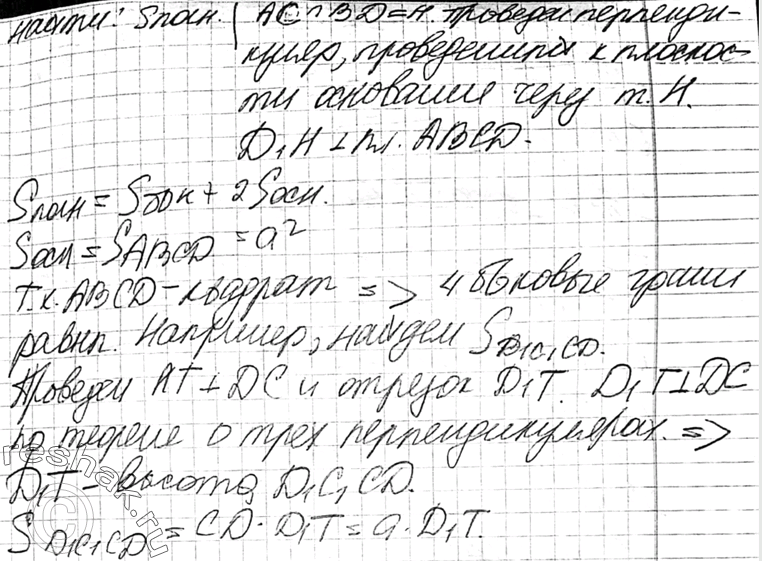 найти: Sполн. | AC∩BD=H. Проведем перпенди-
куляр, проведенный к плоскос-
ти основание через т. H.
D₁H⊥пл. ABCD.
Sполн = Sбок + 2Sосн.
Sосн = SABCD = a²
Т.к. ABCD-квадрат => 4 боковые грани
равны. Например, найдем SD₁C₁CD.
Проведем HT⊥DC и отрезок D₁T. D₁T⊥DC
по теореме о трех перпендикулярах. =>
D₁T-высота D₁C₁CD.
SD₁C₁CD = CD·D₁T = a·D₁T.
reshak.ru